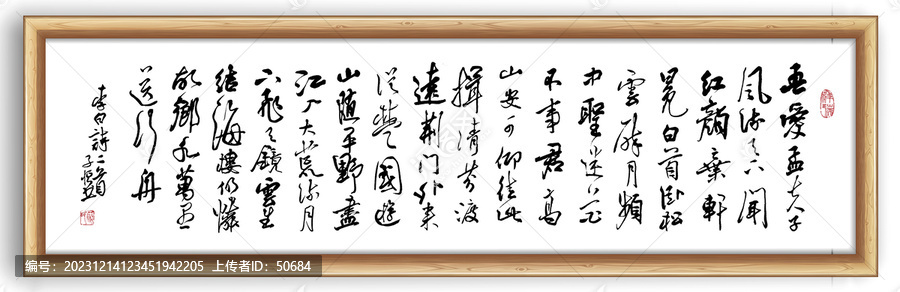 吾愛孟夫子
風流天下聞
红顏棄軒
冕白首卧松
雲醉月頻
中聖迷花
不事君高
山安可仰徒此
揖清芬渡
遠荆门外来
從楚國遊
山随平野盡
江入大荒流月
下飛天鏡雲生
结海樓仍憐
故鄉水萬里
送行舟
李白詩二首
编号：20231214123451942205 上传者ID：50684